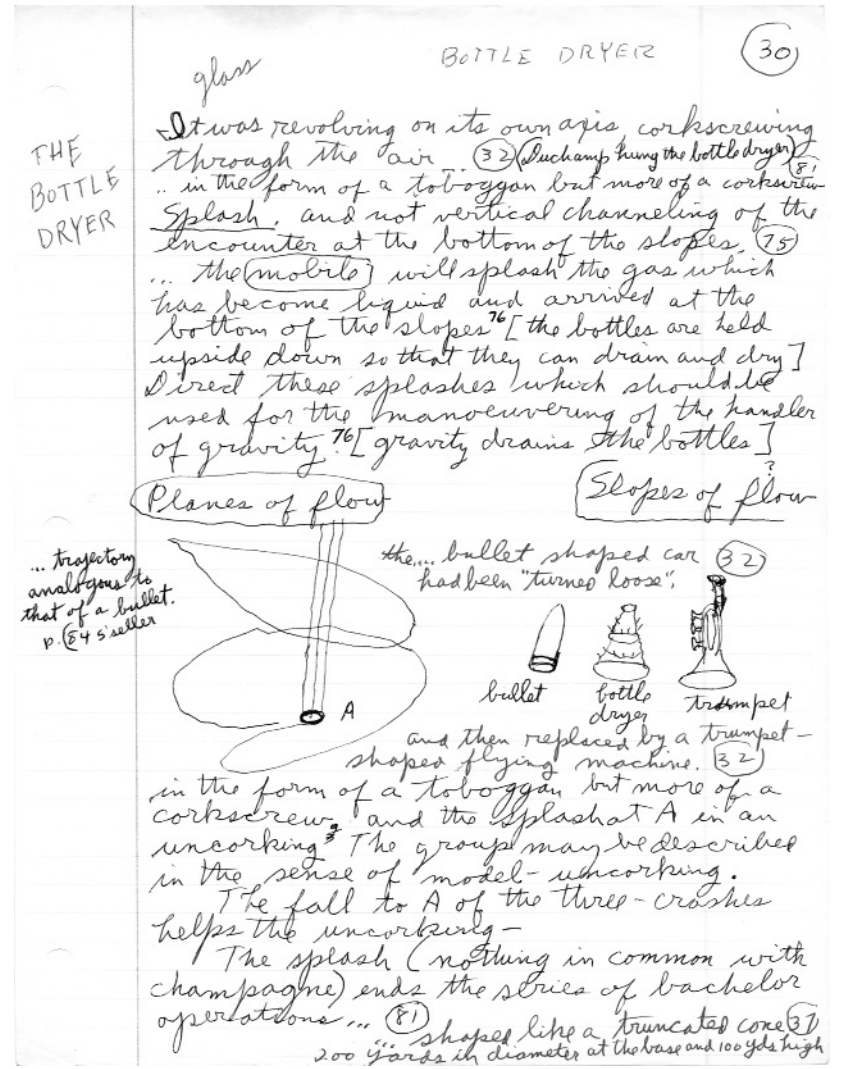 BOTTLE DRYER
30
glass
THE
BOTTLE
DRYER
It was revolving on its own axis, corkscrewing
through the air ... 32 (Duchamp hung the bottle dryer)
81
.. in the form of a toboggan but more of a corkscrew
Splash. and not vertical channeling of the
encounter at the bottom of the slopes. 75
... the mobile will splash the gas which
has become liquid and arrived at the
bottom of the slopes 76 [the bottles are held
upside down so that they can drain and dry]
Direct these splashes which should be
used for the manoeuvering of the handler
of gravity. 76 [gravity drains the bottles]
?
Planes of flow
Slopes of flow
... trajectory
analogous to
that of a bullet.
p. 54 S'seller
the.... bullet shaped car 32
had been "turned loose";
bullet
bottle
dryer
trumpet
A
and then replaced by a trumpet-
shaped flying machine. 32
in the form of a toboggan but more of a
corkscrew, and the splash at A in an
uncorking The group may be described
in the sense of model-uncorking.
The fall to A of the three-crashes
helps the uncorking-
The splash (nothing in common with
champagne) ends the series of bachelor
operations ... 81
... shaped like a truncated cone 37
200 yards in diameter at the base and 100 yds high